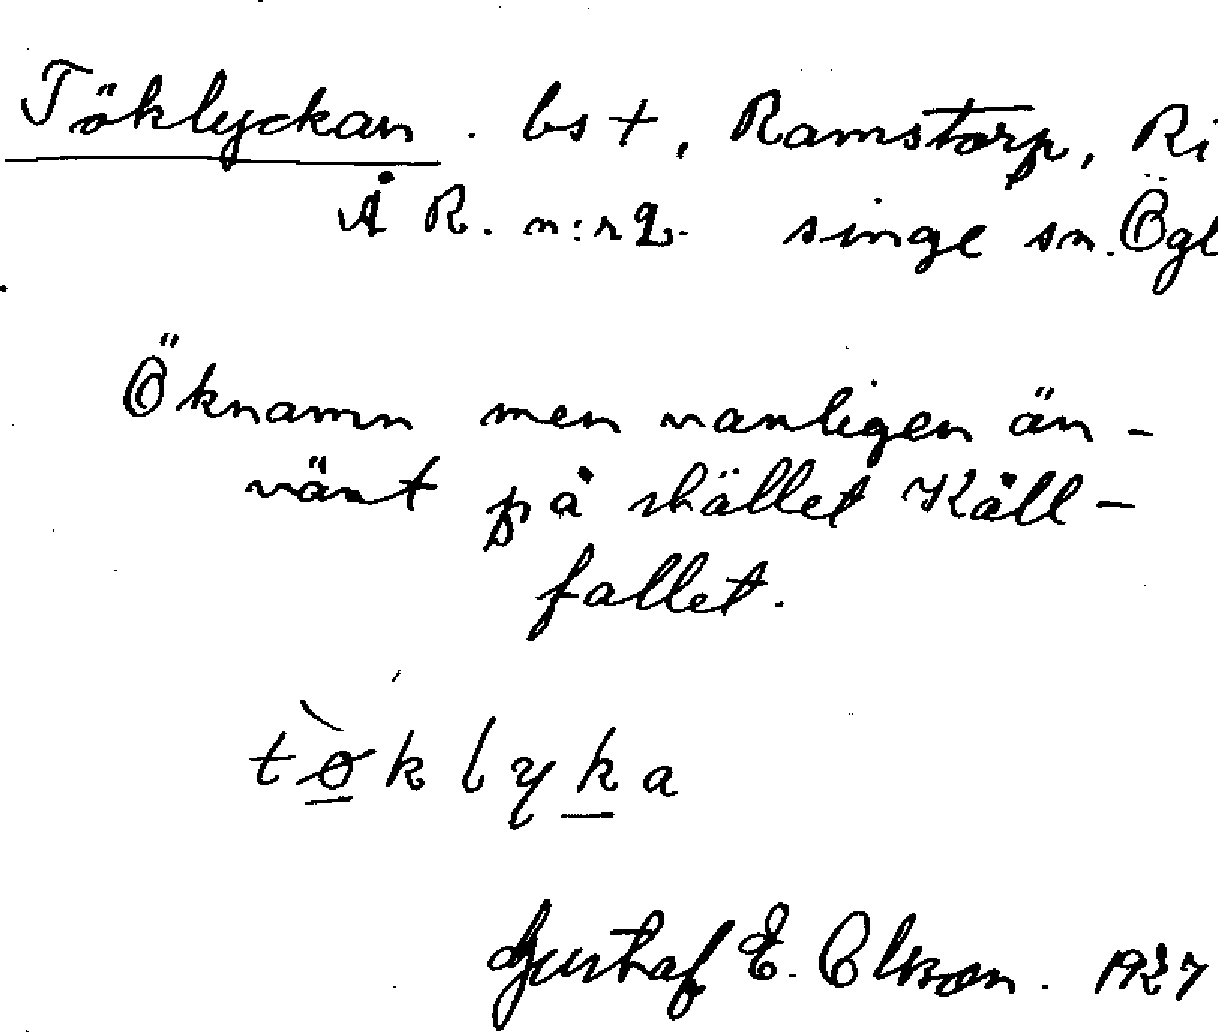 Töklyckan. bst, Ramstorp, Ri
Å R. n:r 2. singe sn. Ögl
Öknamn men vanligen än-
vänt på stället Käll-
fallet.
tøklyka
Gustaf E. Olsson. 1927